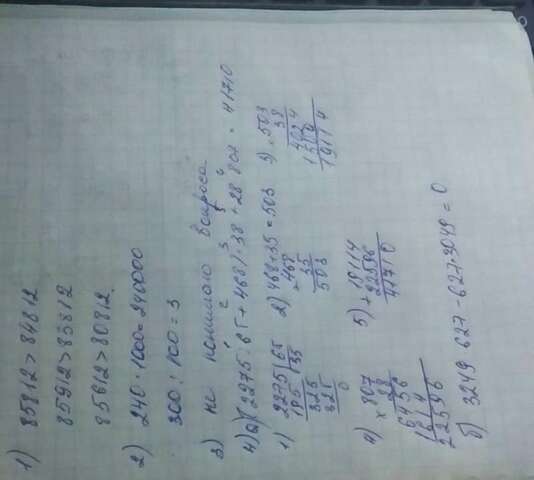 1) 85812 > 84812
85912 > 85812
85612 > 80812.
2) 240 · 1000 = 240000
300 : 100 = 3
3) не понимаю вопроса
4) а) (2275 : 65 + 468) · 38 + 28 · 807 = 41710
1) 2275 | 65
195 | 35
325
325
0
2) 468 + 35 = 503
+ 468
35
503
3) × 503
38
4024
1509
19114
4) × 807
28
6456
1614
22596
5) + 19114
22596
41710
б) 3249 · 627 - 627 · 3049 = 0